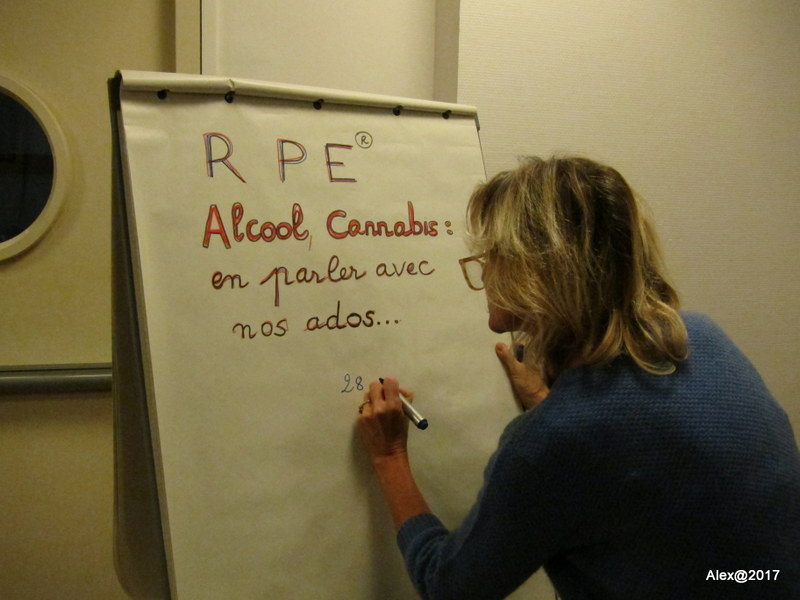 R P E ®
Alcool, Cannabis :
en parler avec
nos ados...
28
Alex@2017